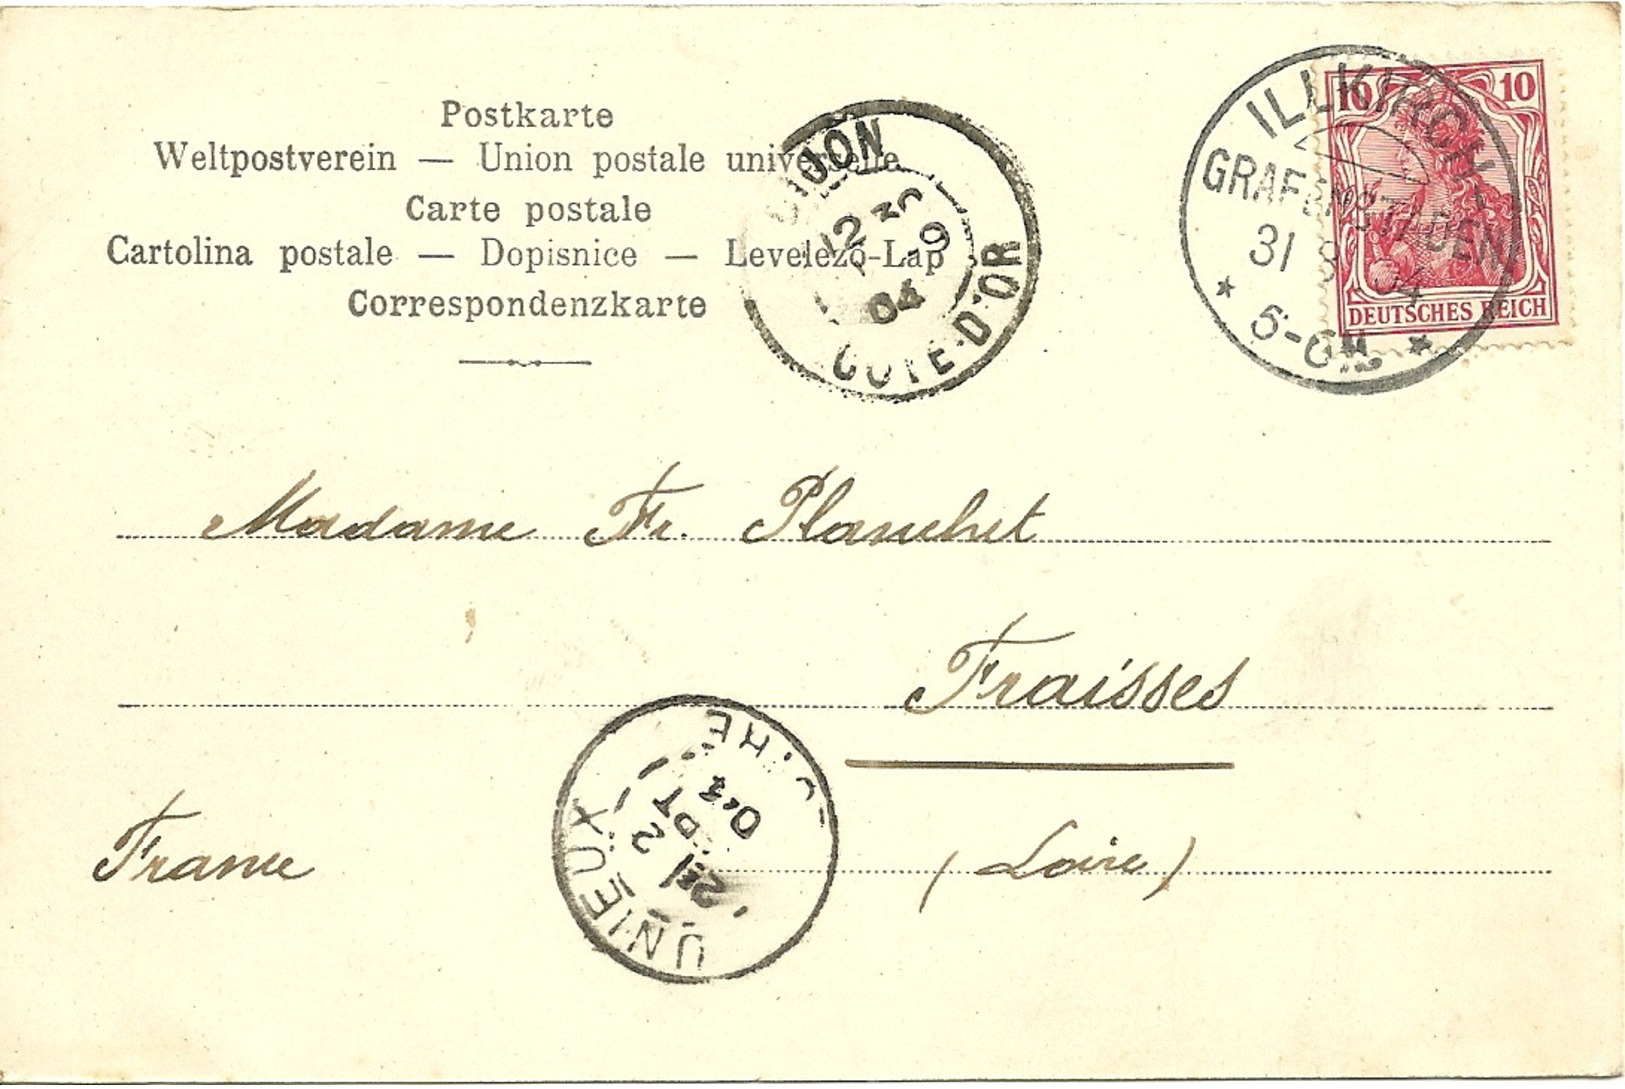 Postkarte
Weltpostverein — Union postale universelle
Carte postale
Cartolina postale — Dopisnice — Levelező-Lap
Correspondenzkarte
DIJON
12 30
9
04
COTE-D'OR
ILLKIRCH-
GRAFENSTADEN
31 8 04
5-6N.
10 10
DEUTSCHES REICH
Madame Fr. Planchet
Fraisses
France (Loire)
UNIEUX
2
04